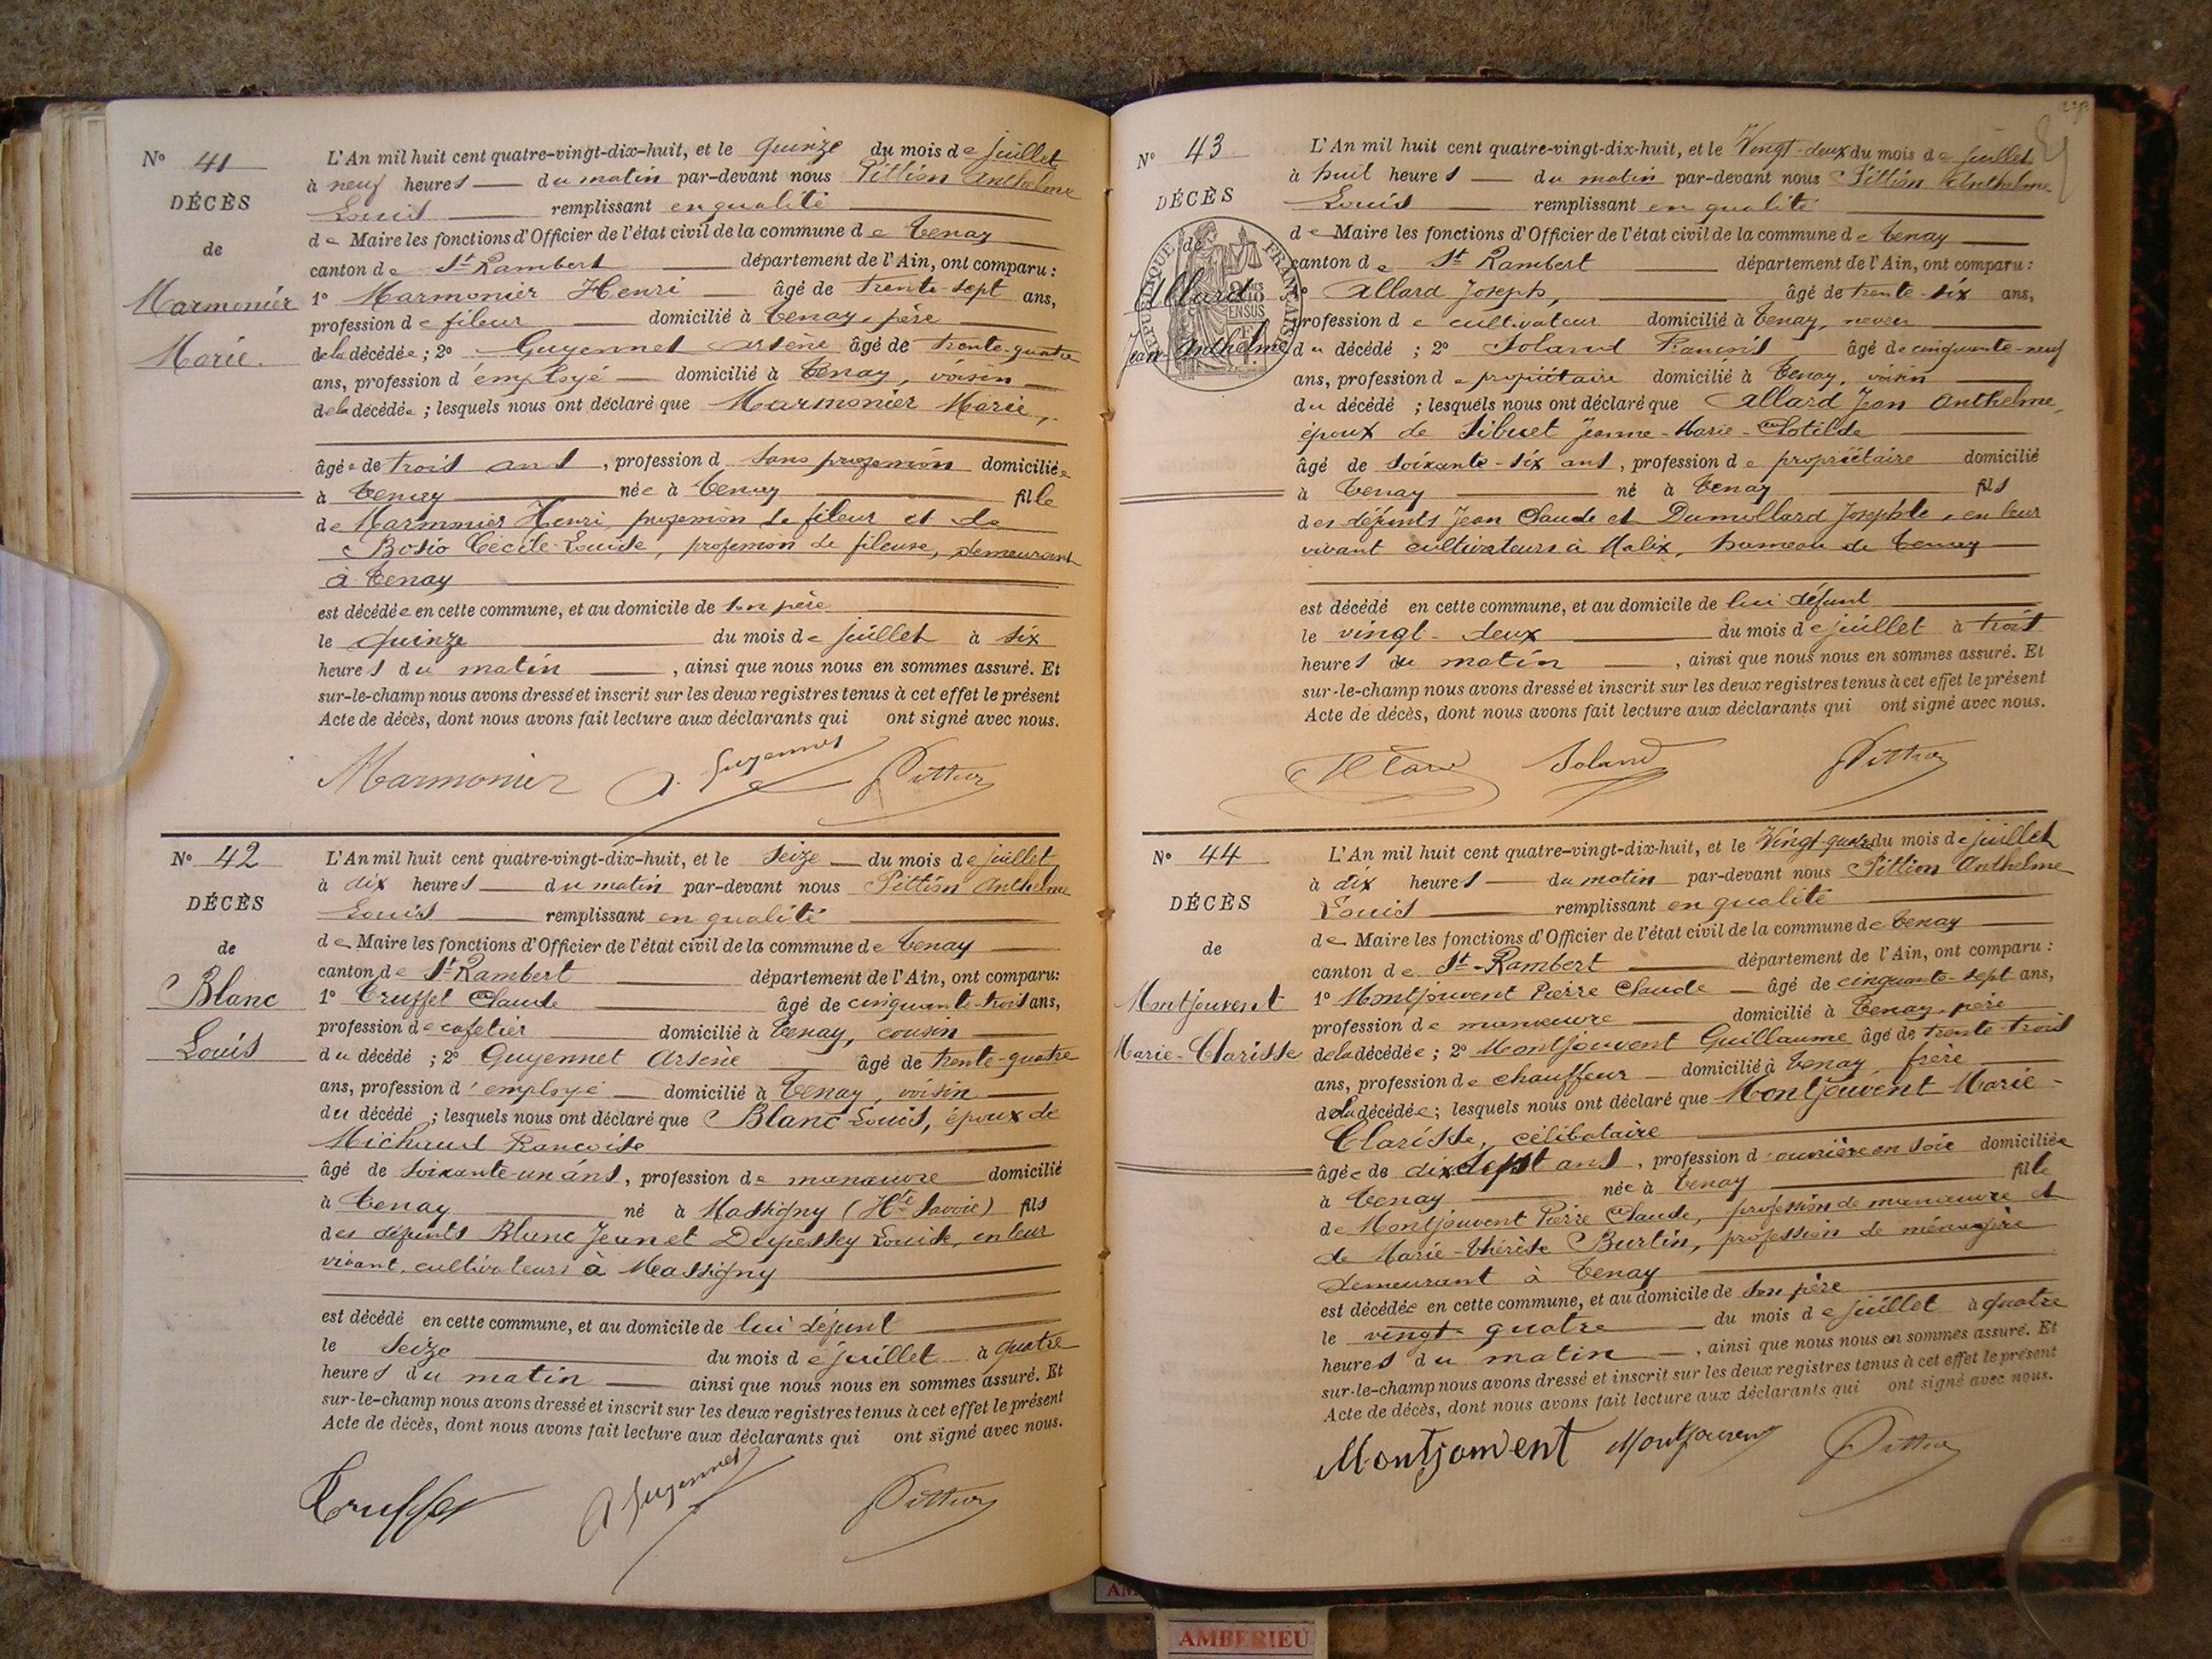 N° 41
DÉCÈS
de
Marmonier
Marie.
L'An mil huit cent quatre-vingt-dix-huit, et le quinze du mois de juillet
à neuf heures du matin par-devant nous Pittion Anthelme
Louis remplissant en qualité
de Maire les fonctions d'Officier de l'état civil de la commune de Tenay
canton de St Rambert département de l'Ain, ont comparu :
1° Marmonier Henri âgé de trente-sept ans,
profession de fileur domicilié à Tenay, père
de la décédée ; 2° Guyennet Arsène âgé de trente-quatre
ans, profession d'employé domicilié à Tenay, voisin
de la décédée ; lesquels nous ont déclaré que Marmonier Marie,
âgée de trois ans, profession d sans profession domiciliée
à Tenay née à Tenay fille
de Marmonier Henri, profession de fileur et de
Bosio Cécile-Louise, profession de fileuse, demeurant
à Tenay
est décédée en cette commune, et au domicile de son père
le quinze du mois de juillet à six
heures du matin, ainsi que nous nous en sommes assuré. Et
sur-le-champ nous avons dressé et inscrit sur les deux registres tenus à cet effet le présent
Acte de décès, dont nous avons fait lecture aux déclarants qui ont signé avec nous.
Marmonier A. Guyennet Pittion
N° 42
DÉCÈS
de
Blanc
Louis
L'An mil huit cent quatre-vingt-dix-huit, et le seize du mois de juillet
à dix heures du matin par-devant nous Pittion Anthelme
Louis remplissant en qualité
de Maire les fonctions d'Officier de l'état civil de la commune de Tenay
canton de St Rambert département de l'Ain, ont comparu:
1° Truffet Claude âgé de cinquante-trois ans,
profession de cafetier domicilié à Tenay, cousin
du décédé ; 2° Guyennet Arsène âgé de trente-quatre
ans, profession d'employé domicilié à Tenay, voisin
du décédé ; lesquels nous ont déclaré que Blanc Louis, époux de
Michaud Françoise
âgé de soixante-un ans, profession de manœuvre domicilié
à Tenay né à Massigny (Hte Savoie) fils
des défunts Blanc Jean et Dupessey Louise, en leur
vivant, cultivateurs à Massigny
est décédé en cette commune, et au domicile de lui défunt
le seize du mois de juillet à quatre
heures du matin ainsi que nous nous en sommes assuré. Et
sur-le-champ nous avons dressé et inscrit sur les deux registres tenus à cet effet le présent
Acte de décès, dont nous avons fait lecture aux déclarants qui ont signé avec nous.
Truffet A Guyennet Pittion
N° 43
DÉCÈS
de
Allard
Jean-Anthelme
RÉPUBLIQUE FRANÇAISE
L'An mil huit cent quatre-vingt-dix-huit, et le Vingt-deux du mois de juillet
à huit heures du matin par-devant nous Pittion Anthelme
Louis remplissant en qualité
de Maire les fonctions d'Officier de l'état civil de la commune de Tenay
canton de St Rambert département de l'Ain, ont comparu :
1° Allard Joseph, âgé de trente-six ans,
profession de cultivateur domicilié à Tenay, neveu
du décédé ; 2° Soland François âgé de cinquante-neuf
ans, profession de propriétaire domicilié à Tenay, voisin
du décédé ; lesquels nous ont déclaré que Allard Jean Anthelme,
époux de Sibuet Jeanne-Marie-Clotilde
âgé de soixante-six ans, profession de propriétaire domicilié
à Tenay né à Tenay fils
des défunts Jean Claude et Dumollard Josephte, en leur
vivant cultivateurs à Malix, hameau de Tenay
est décédé en cette commune, et au domicile de lui défunt
le vingt-deux du mois de juillet à trois
heures du matin, ainsi que nous nous en sommes assuré. Et
sur-le-champ nous avons dressé et inscrit sur les deux registres tenus à cet effet le présent
Acte de décès, dont nous avons fait lecture aux déclarants qui ont signé avec nous.
Allard Soland Pittion
N° 44
DÉCÈS
de
Montjouvent
Marie-Clarisse
L'An mil huit cent quatre-vingt-dix-huit, et le Vingt-quatre du mois de juillet
à dix heures du matin par-devant nous Pittion Anthelme
Louis remplissant en qualité
de Maire les fonctions d'Officier de l'état civil de la commune de Tenay
canton de St-Rambert département de l'Ain, ont comparu :
1° Montjouvent Pierre Claude âgé de cinquante-sept ans,
profession de manœuvre domicilié à Tenay, père
de la décédée ; 2° Montjouvent Guillaume âgé de trente-trois
ans, profession de chauffeur domicilié à Tenay, frère
de la décédée ; lesquels nous ont déclaré que Montjouvent Marie-
Clarisse, célibataire
âgée de dix sept ans, profession d'ouvrière en soie domiciliée
à Tenay née à Tenay fille
de Montjouvent Pierre Claude, profession de manœuvre et
de Marie-Thérèse Burtin, profession de ménagère
demeurant à Tenay
est décédée en cette commune, et au domicile de son père
le vingt-quatre du mois de juillet à quatre
heures du matin, ainsi que nous nous en sommes assuré. Et
sur-le-champ nous avons dressé et inscrit sur les deux registres tenus à cet effet le présent
Acte de décès, dont nous avons fait lecture aux déclarants qui ont signé avec nous.
Montjouvent Montjouvent Pittion
AMBERIEU